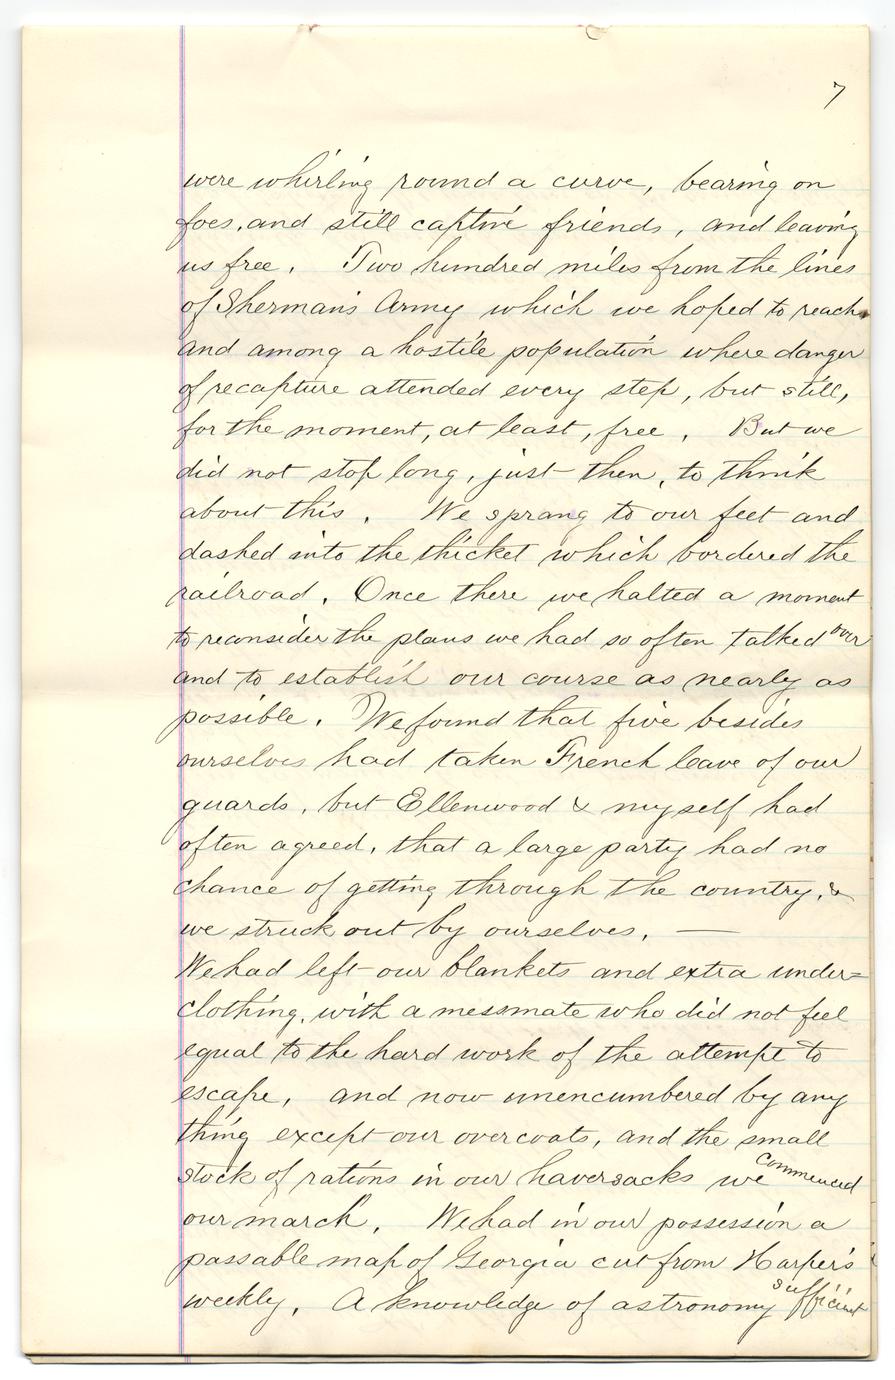 7
were whirling round a curve, bearing on
foes, and still captive friends, and leaving
us free. Two hundred miles from the lines
of Sherman's Army which we hoped to reach
and among a hostile population where danger
of recapture attended every step, but still,
for the moment, at least, free. But we
did not stop long, just then, to think
about this. We sprang to our feet and
dashed into the thicket which bordered the
railroad. Once there we halted a moment
to reconsider the plans we had so often talked over
and to establish our course as nearly as
possible. We found that five besides
ourselves had taken French leave of our
guards, but Ellenwood & myself had
often agreed, that a large party had no
chance of getting through the country, &
we struck out by ourselves. —
We had left our blankets and extra under=
clothing, with a messmate who did not feel
equal to the hard work of the attempt to
escape, and now unencumbered by any
thing except our overcoats, and the small
stock of rations in our haversacks we commenced
our march. We had in our possession a
passable map of Georgia cut from Harper's
weekly. A knowledge of astronomy sufficient